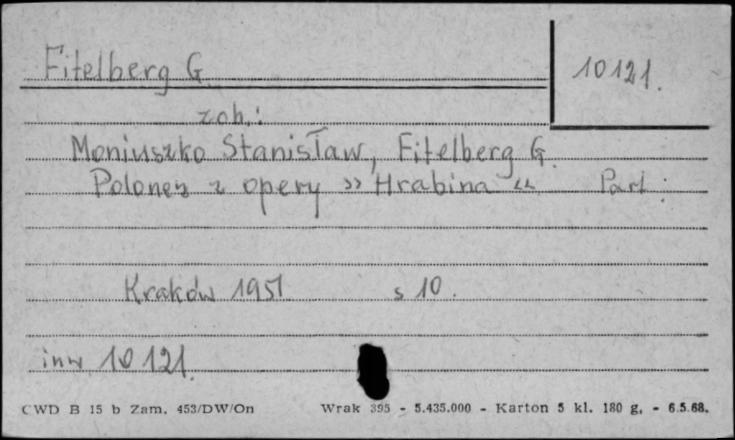 Fitelberg G.
10121.
zob.:
Moniuszko Stanisław, Fitelberg G.
Polonez z opery »Hrabina« Part.
Kraków 1951 s 10.
inw 10121.
CWD B 15 b Zam. 453/DW/On Wrak 395 - 5.435.000 - Karton 5 kl. 180 g. - 6.5.68.